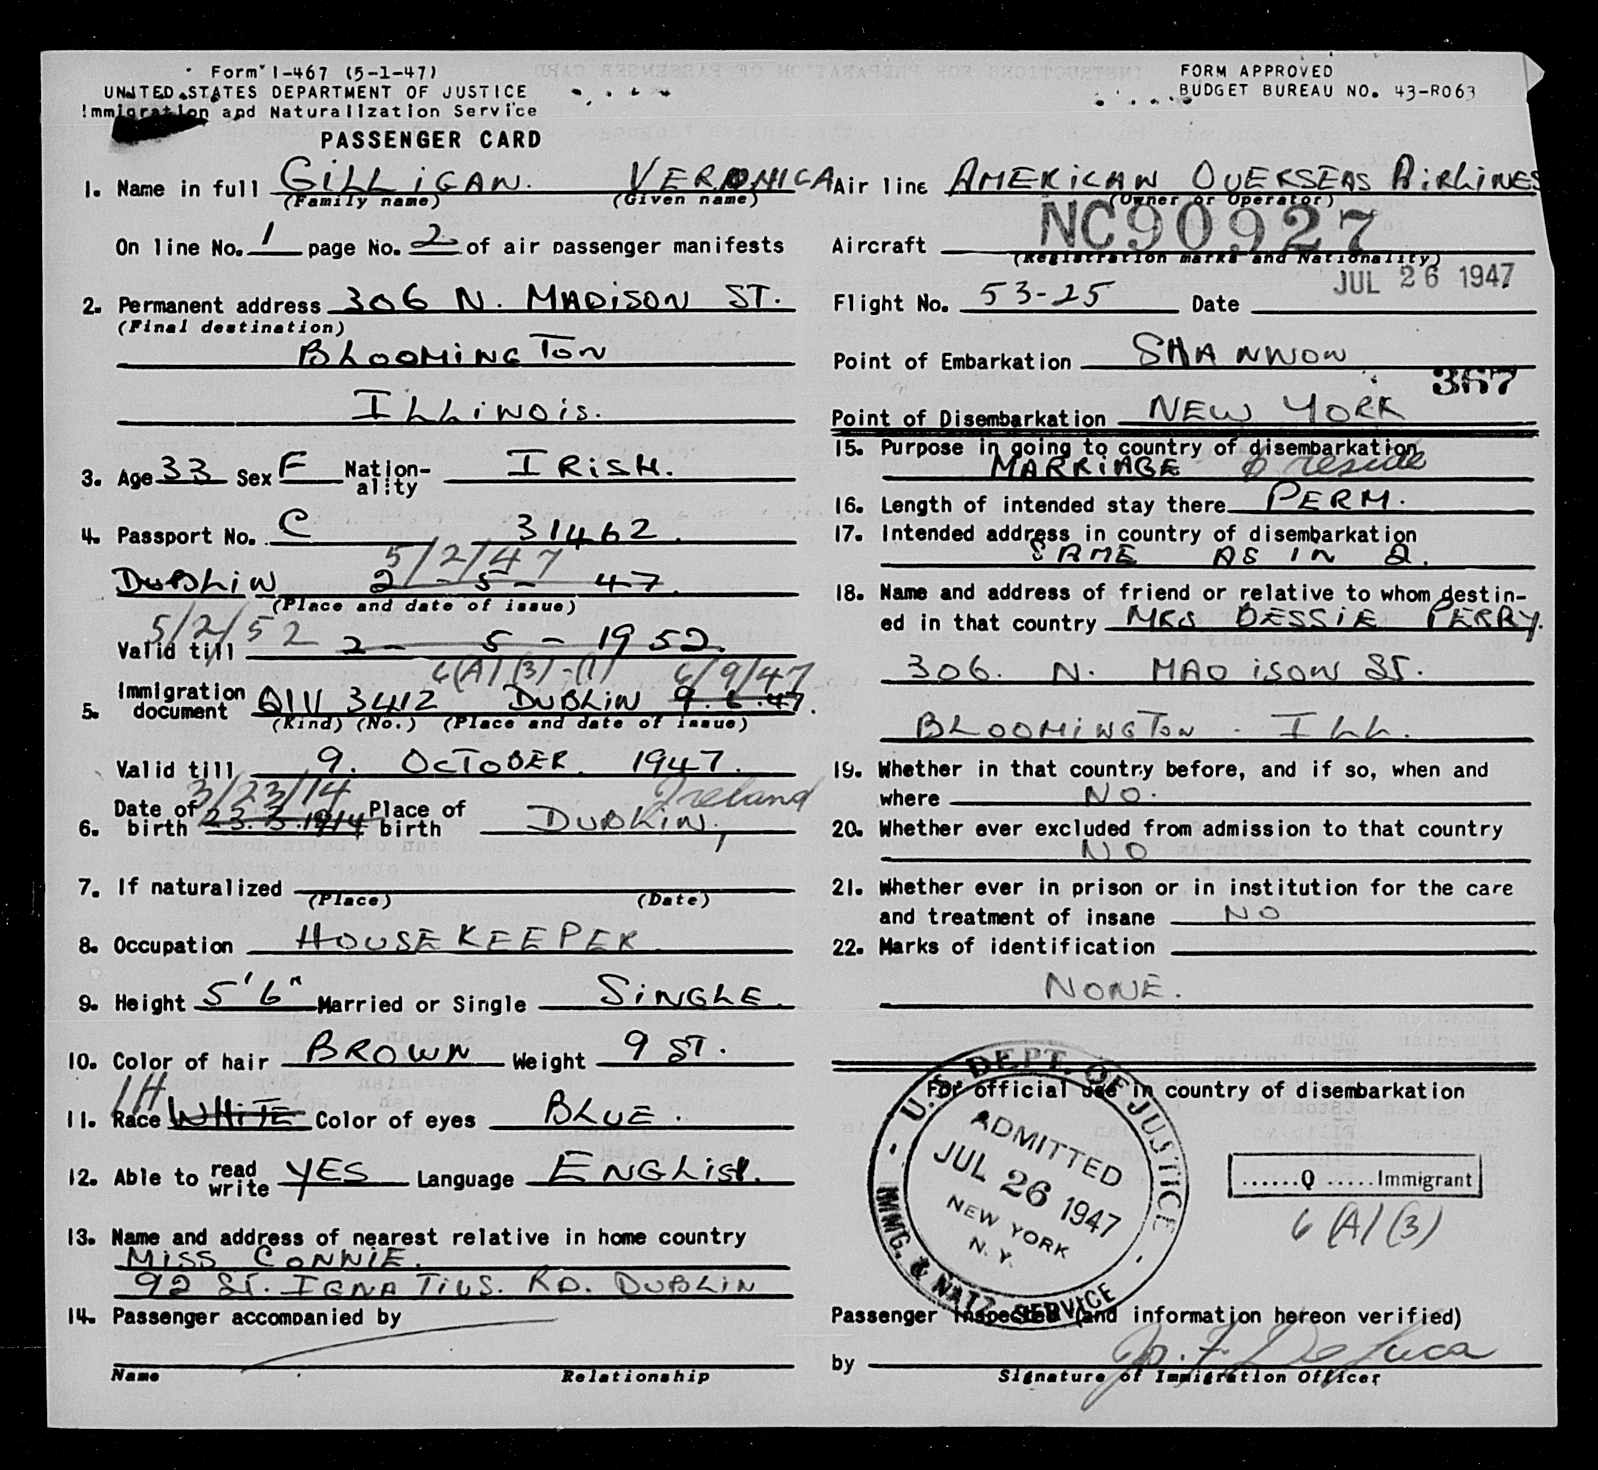 Form I-467 (5-1-47)
UNITED STATES DEPARTMENT OF JUSTICE
Immigration and Naturalization Service
PASSENGER CARD
FORM APPROVED
BUDGET BUREAU NO. 43-R063
1. Name in full GILLIGAN. VERONICA
(Family name) (Given name)
On line No. 1 page No. 2 of air passenger manifests
2. Permanent address 306 N. MADISON ST.
(Final destination)
BLOOMINGTON
ILLINOIS.
3. Age 33 Sex F Nation-ality IRISH.
4. Passport No. C 31462.
5/2/47
DUBLIN 2 - 5 - 47.
(Place and date of issue)
5/2/52
Valid till 2 - 5 - 1952.
6(A)(3)-(1) 6/9/47
5. Immigration document QIV 3412 DUBLIN 9.6.47.
(Kind) (No.) (Place and date of issue)
Valid till 9. OCTOBER 1947.
3/23/14 Ireland
6. Date of birth 23.3.1914 Place of birth DUBLIN,
7. If naturalized
(Place) (Date)
8. Occupation HOUSEKEEPER
9. Height 5'6" Married or Single SINGLE.
10. Color of hair BROWN Weight 9 ST.
IH
11. Race WHITE Color of eyes BLUE.
12. Able to read write YES Language ENGLISH.
13. Name and address of nearest relative in home country
MISS CONNIE.
92 ST. IGNATIUS. RD. DUBLIN
14. Passenger accompanied by
Name Relationship
Air line AMERICAN OVERSEAS AIRLINES
(Owner or Operator)
Aircraft NC90927
(Registration marks and Nationality)
JUL 26 1947
Flight No. 53-25 Date
Point of Embarkation SHANNON
367
Point of Disembarkation NEW YORK
15. Purpose in going to country of disembarkation
MARRIAGE & reside
16. Length of intended stay there PERM.
17. Intended address in country of disembarkation
SAME AS IN 2.
18. Name and address of friend or relative to whom destin-
ed in that country MRS BESSIE PERRY.
306. N. MADISON ST.
BLOOMINGTON. ILL.
19. Whether in that country before, and if so, when and
where NO.
20. Whether ever excluded from admission to that country
NO
21. Whether ever in prison or in institution for the care
and treatment of insane NO
22. Marks of identification
NONE.
For official use in country of disembarkation
U.S. DEPT. OF JUSTICE
ADMITTED
JUL 26 1947
NEW YORK
N.Y.
IMMG. & NATZ. SERVICE
......Q .....Immigrant
6(A)(3)
Passenger Inspected (and information hereon verified)
by Jo. F. DeLuca
Signature of Immigration Officer